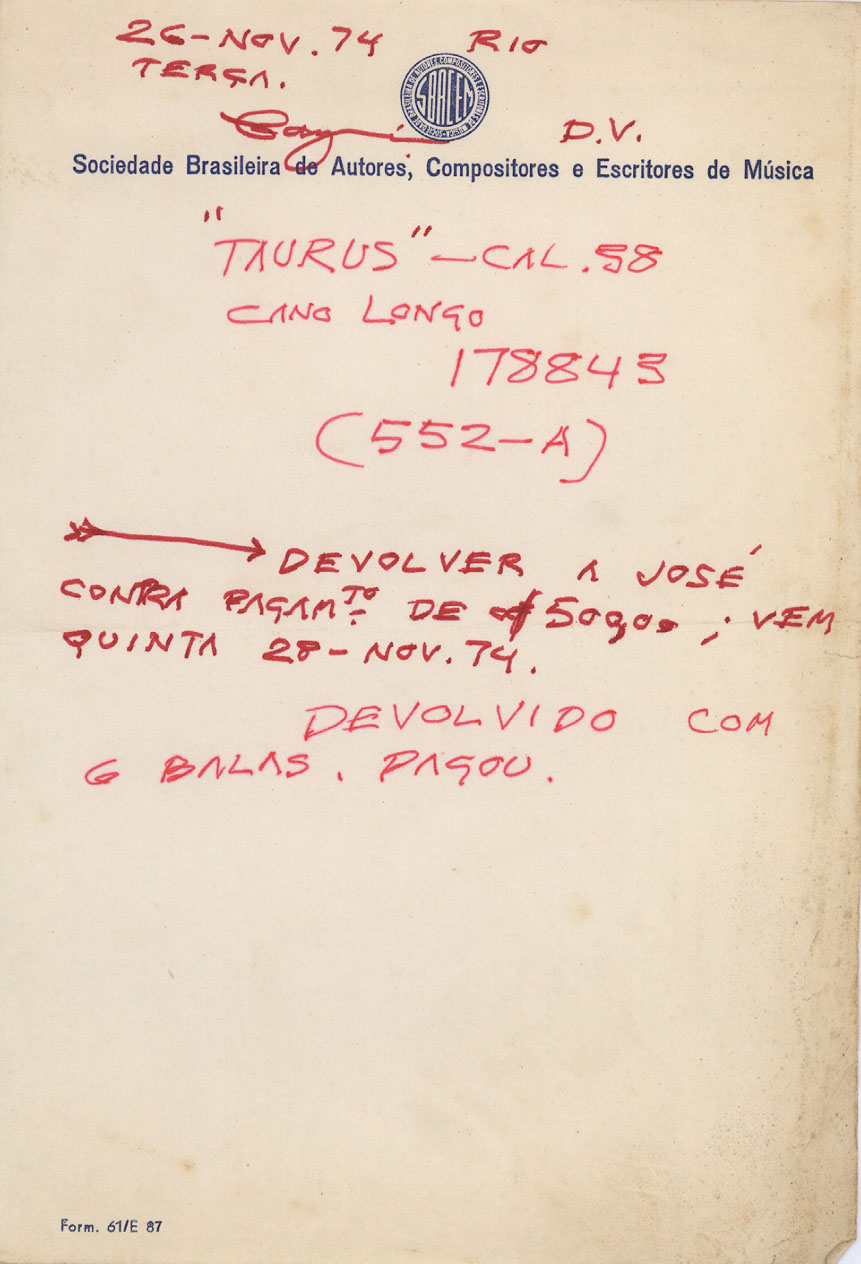 26-NOV.74 RIO
TERÇA.
SBACEM
D.V.
Sociedade Brasileira de Autores, Compositores e Escritores de Música
"TAURUS" — CAL.38
CANO LONGO
178843
(552-A)
DEVOLVER A JOSÉ
CONTRA PAGAMTO DE ; VEM
QUINTA 28-NOV.74.
DEVOLVIDO COM
6 BALAS. PAGOU.
Form. 61/E 87